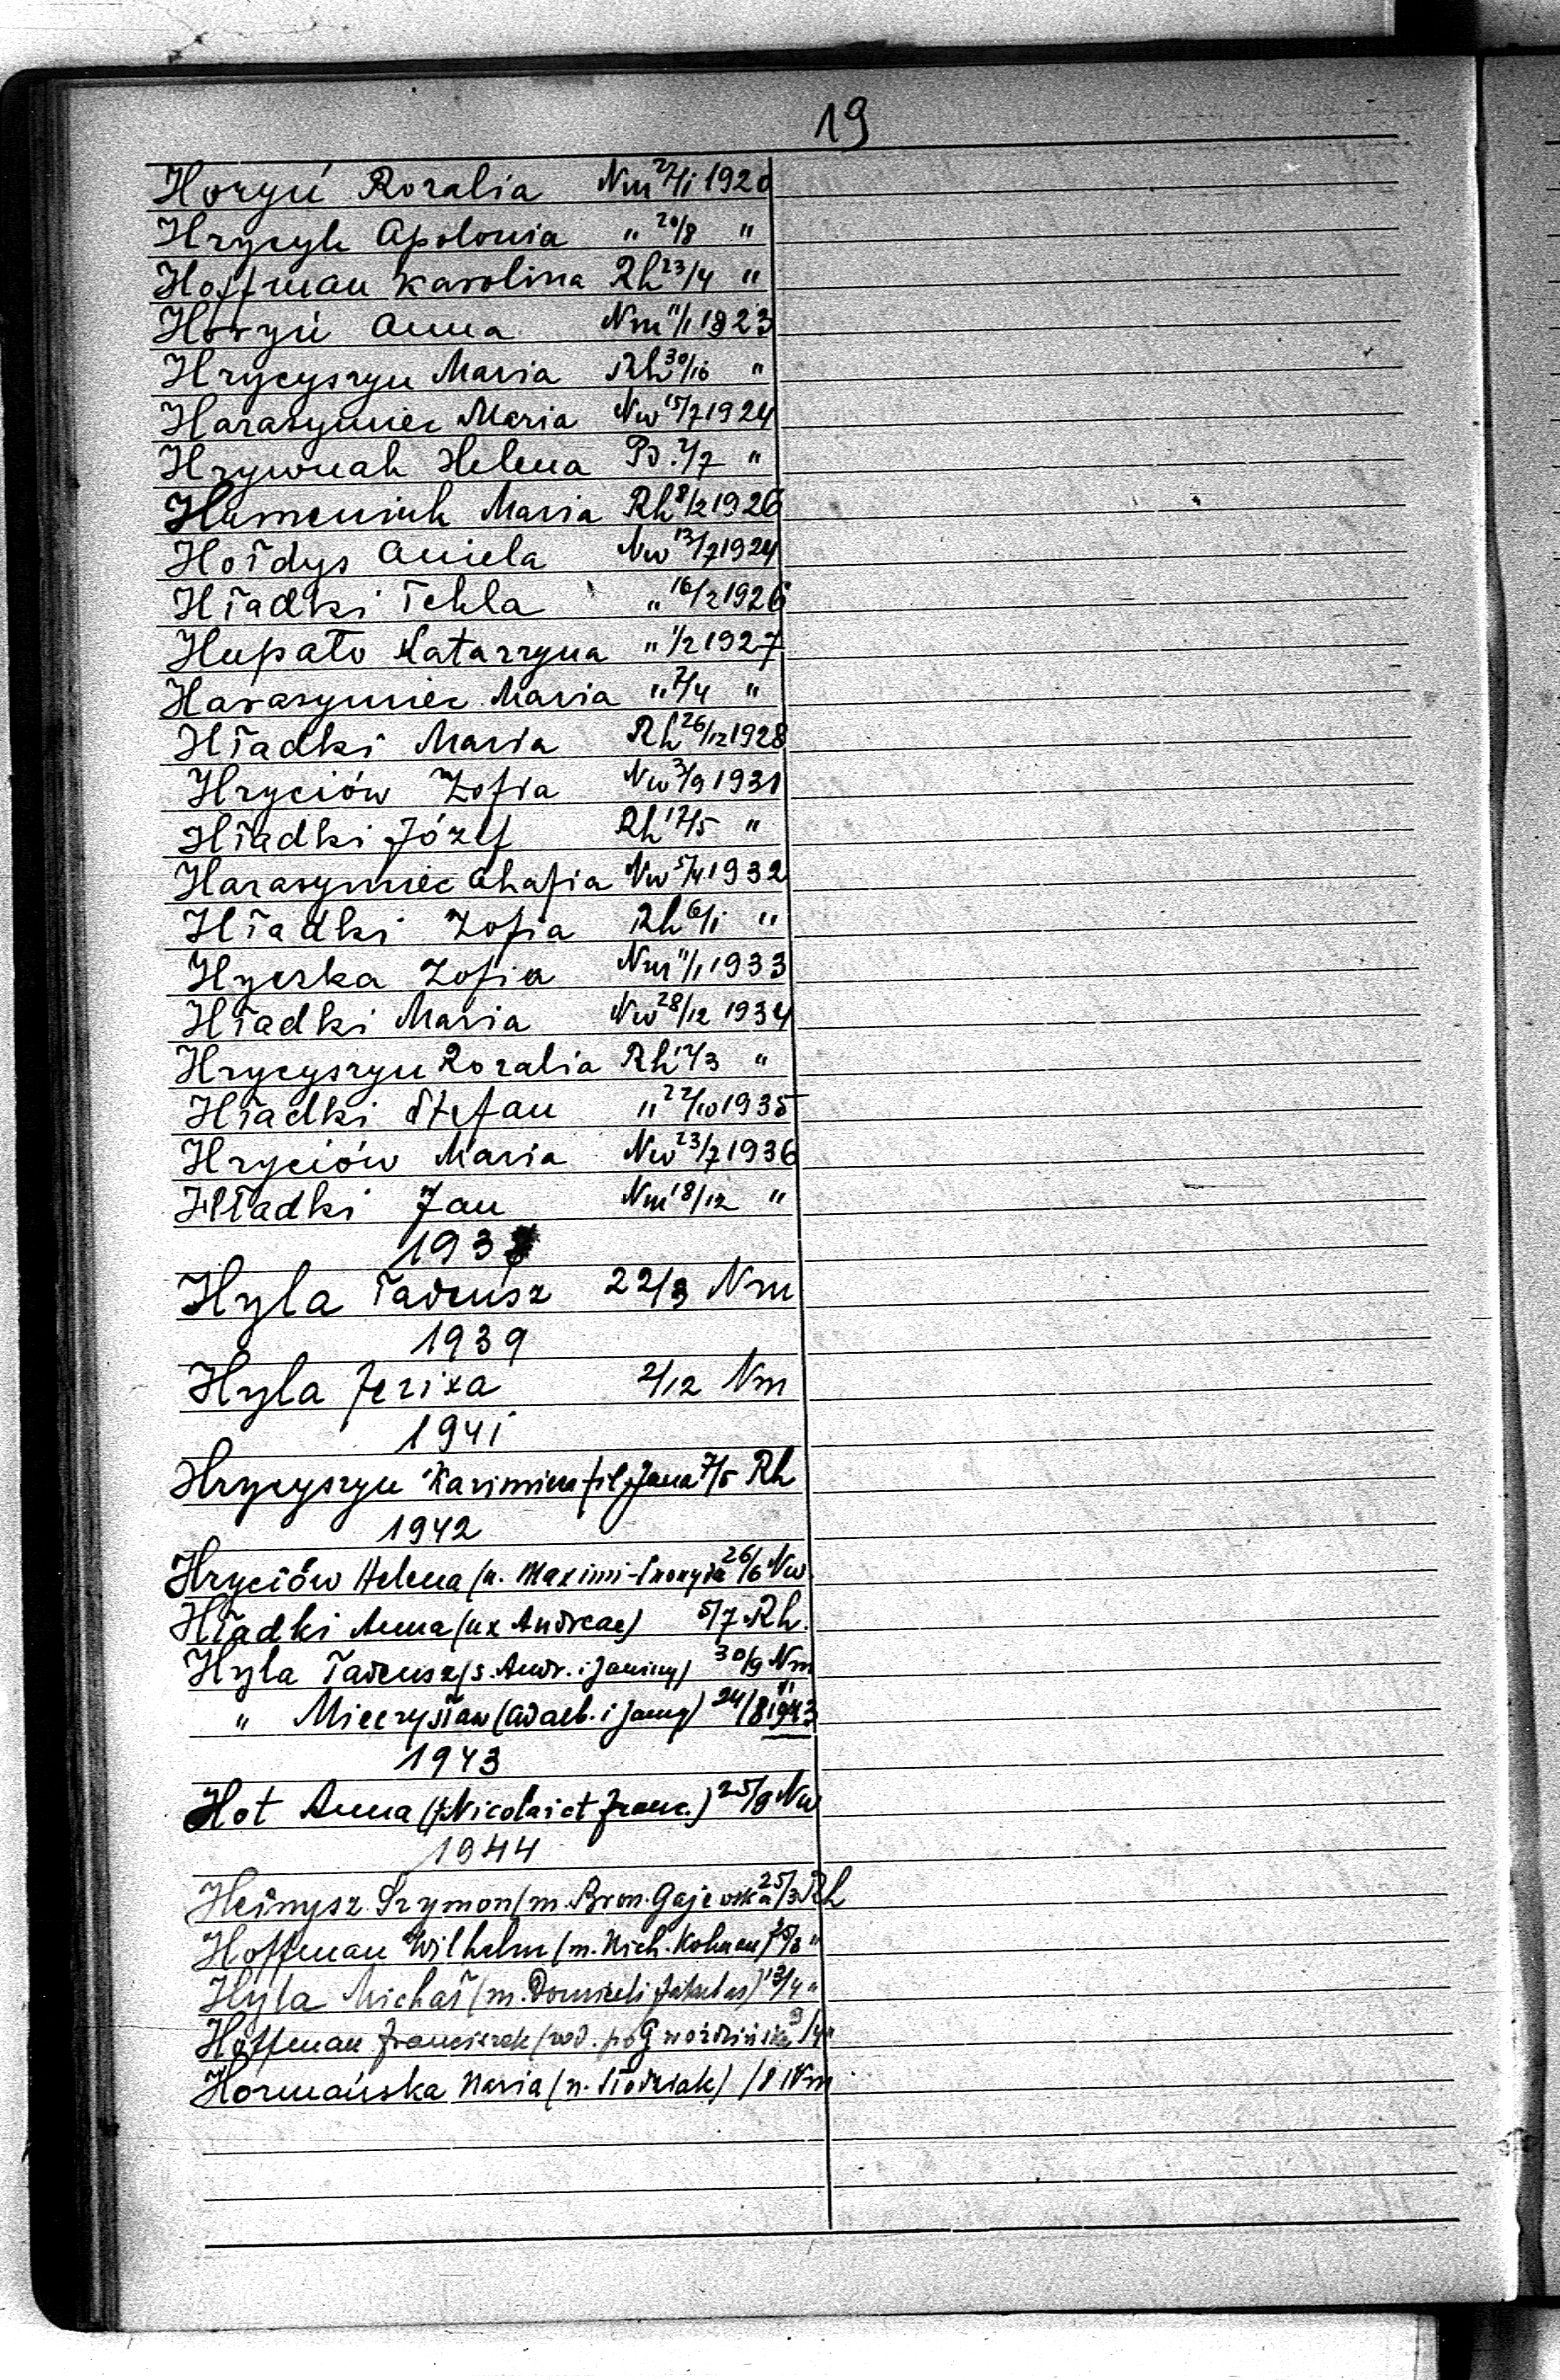 19
Horyń Rozalia Nm 27/1 1920
Hrycyk Apolonia " 20/8 "
Hoffman Karolina Rh 23/4 "
Horyń Anna Nm 11/1 1923
Hrycyszyn Maria Rh 30/10 "
Harasymiec Maria Nw 15/7 1924
Hrywnak Helena 2/7 "
Humeniuk Maria Rh 8/2 1926
Hołdys Aniela Nw 13/7 1924
Hładki Tekla " 16/2 1926
Hupało Katarzyna " 1/2 1927
Harasymiec Maria " 7/4 "
Hładki Maria Rh 26/12 1928
Hryciów Zofia Nw 3/9 1931
Hładki Józef Rh 17/5 "
Harasymiec Ahafia Nw 5/4 1932
Hładki Zofia Rh 6/1 "
Hycka Zofia Nm 11/1 1933
Hładki Maria Nw 28/12 1934
Hrycyszyn Rozalia Rh 17/3 "
Hładki Stefan " 22/10 1935
Hryciów Maria Nw 23/7 1936
Hładki Jan Nm 18/12 "
Hyla Tadeusz 22/3 Nm
1939
Hyla 2/12 Nm
1941
Hrycyszyn fil. Jana 7/5 Rh
1942
Hryciów Helena 26/6 Nw
Hładki Anna (ux Andreae) 5/7 Rh.
Hyla Tadeusz (s. Andr. i Janiny) 30/9 Nm
" Mieczysław 24/8 1943
1943
Hot Anna (f. Nicolai et Franc.) 25/9 Nw
1944
Heinysz Szymon (m. Bron. Gajewska 25/3 Rh
Hoffman Wilhelm
Hyla Michał 13/4 "
Hoffman Franciszek
Hormańska Maria /8 Nm